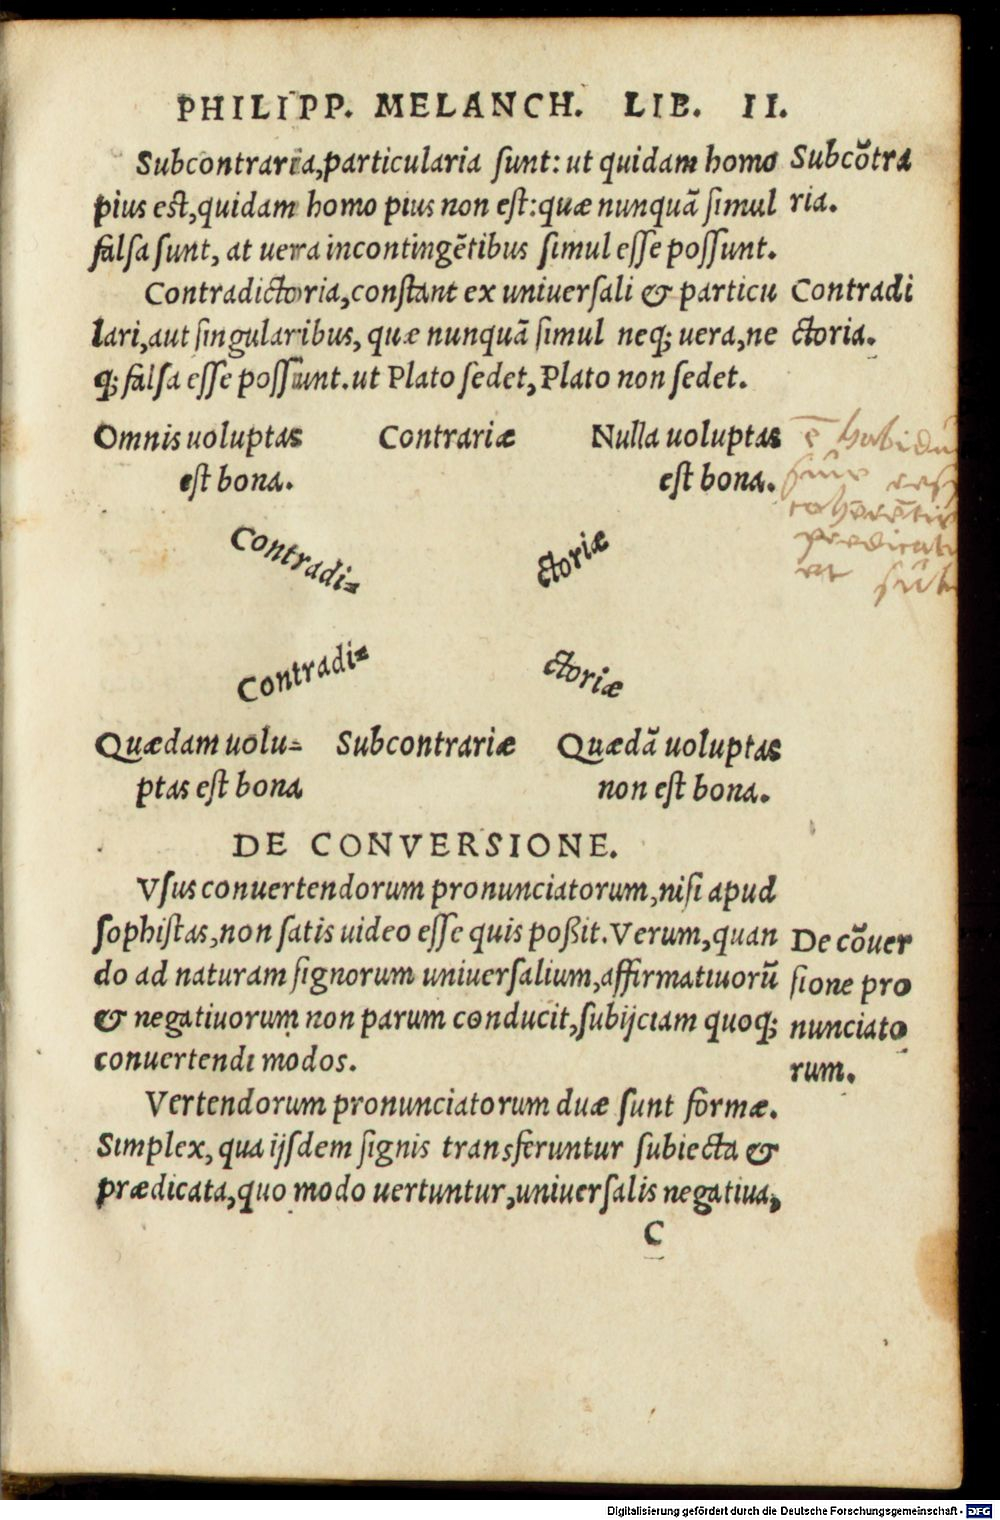 PHILIPP. MELANCH. LIB. II.
Subcontraria,particularia sunt: ut quidam homo
pius est,quidam homo pius non est:quæ nunquã simul
falsa sunt, at uera incontingẽtibus simul esse possunt.
Subcõtra
ria.
Contradictoria,constant ex uniuersali & particu
lari,aut singularibus, quæ nunquã simul neq; uera,ne
q; falsa esse possunt.ut Plato sedet, Plato non sedet.
Contradi
ctoria.
Omnis uoluptas Contrariæ Nulla uoluptas
est bona. est bona.
Contradi= ctoriæ
Contradi= ctoriæ
Quædam uolu= Subcontrariæ Quædã uoluptas
ptas est bona non est bona.
DE CONVERSIONE.
Vsus conuertendorum pronunciatorum,nisi apud
sophistas,non satis uideo esse quis poßit.Verum,quan
do ad naturam signorum uniuersalium,affirmatiuorũ
& negatiuorum non parum conducit,subijciam quoq;
conuertendi modos.
De cõuer
sione pro
nunciato
rum.
Vertendorum pronunciatorum duæ sunt formæ.
Simplex, qua ijsdem signis transferuntur subiecta &
prædicata,quo modo uertuntur,uniuersalis negatiua,
C
Digitalisierung gefördert durch die Deutsche Forschungsgemeinschaft - DFG